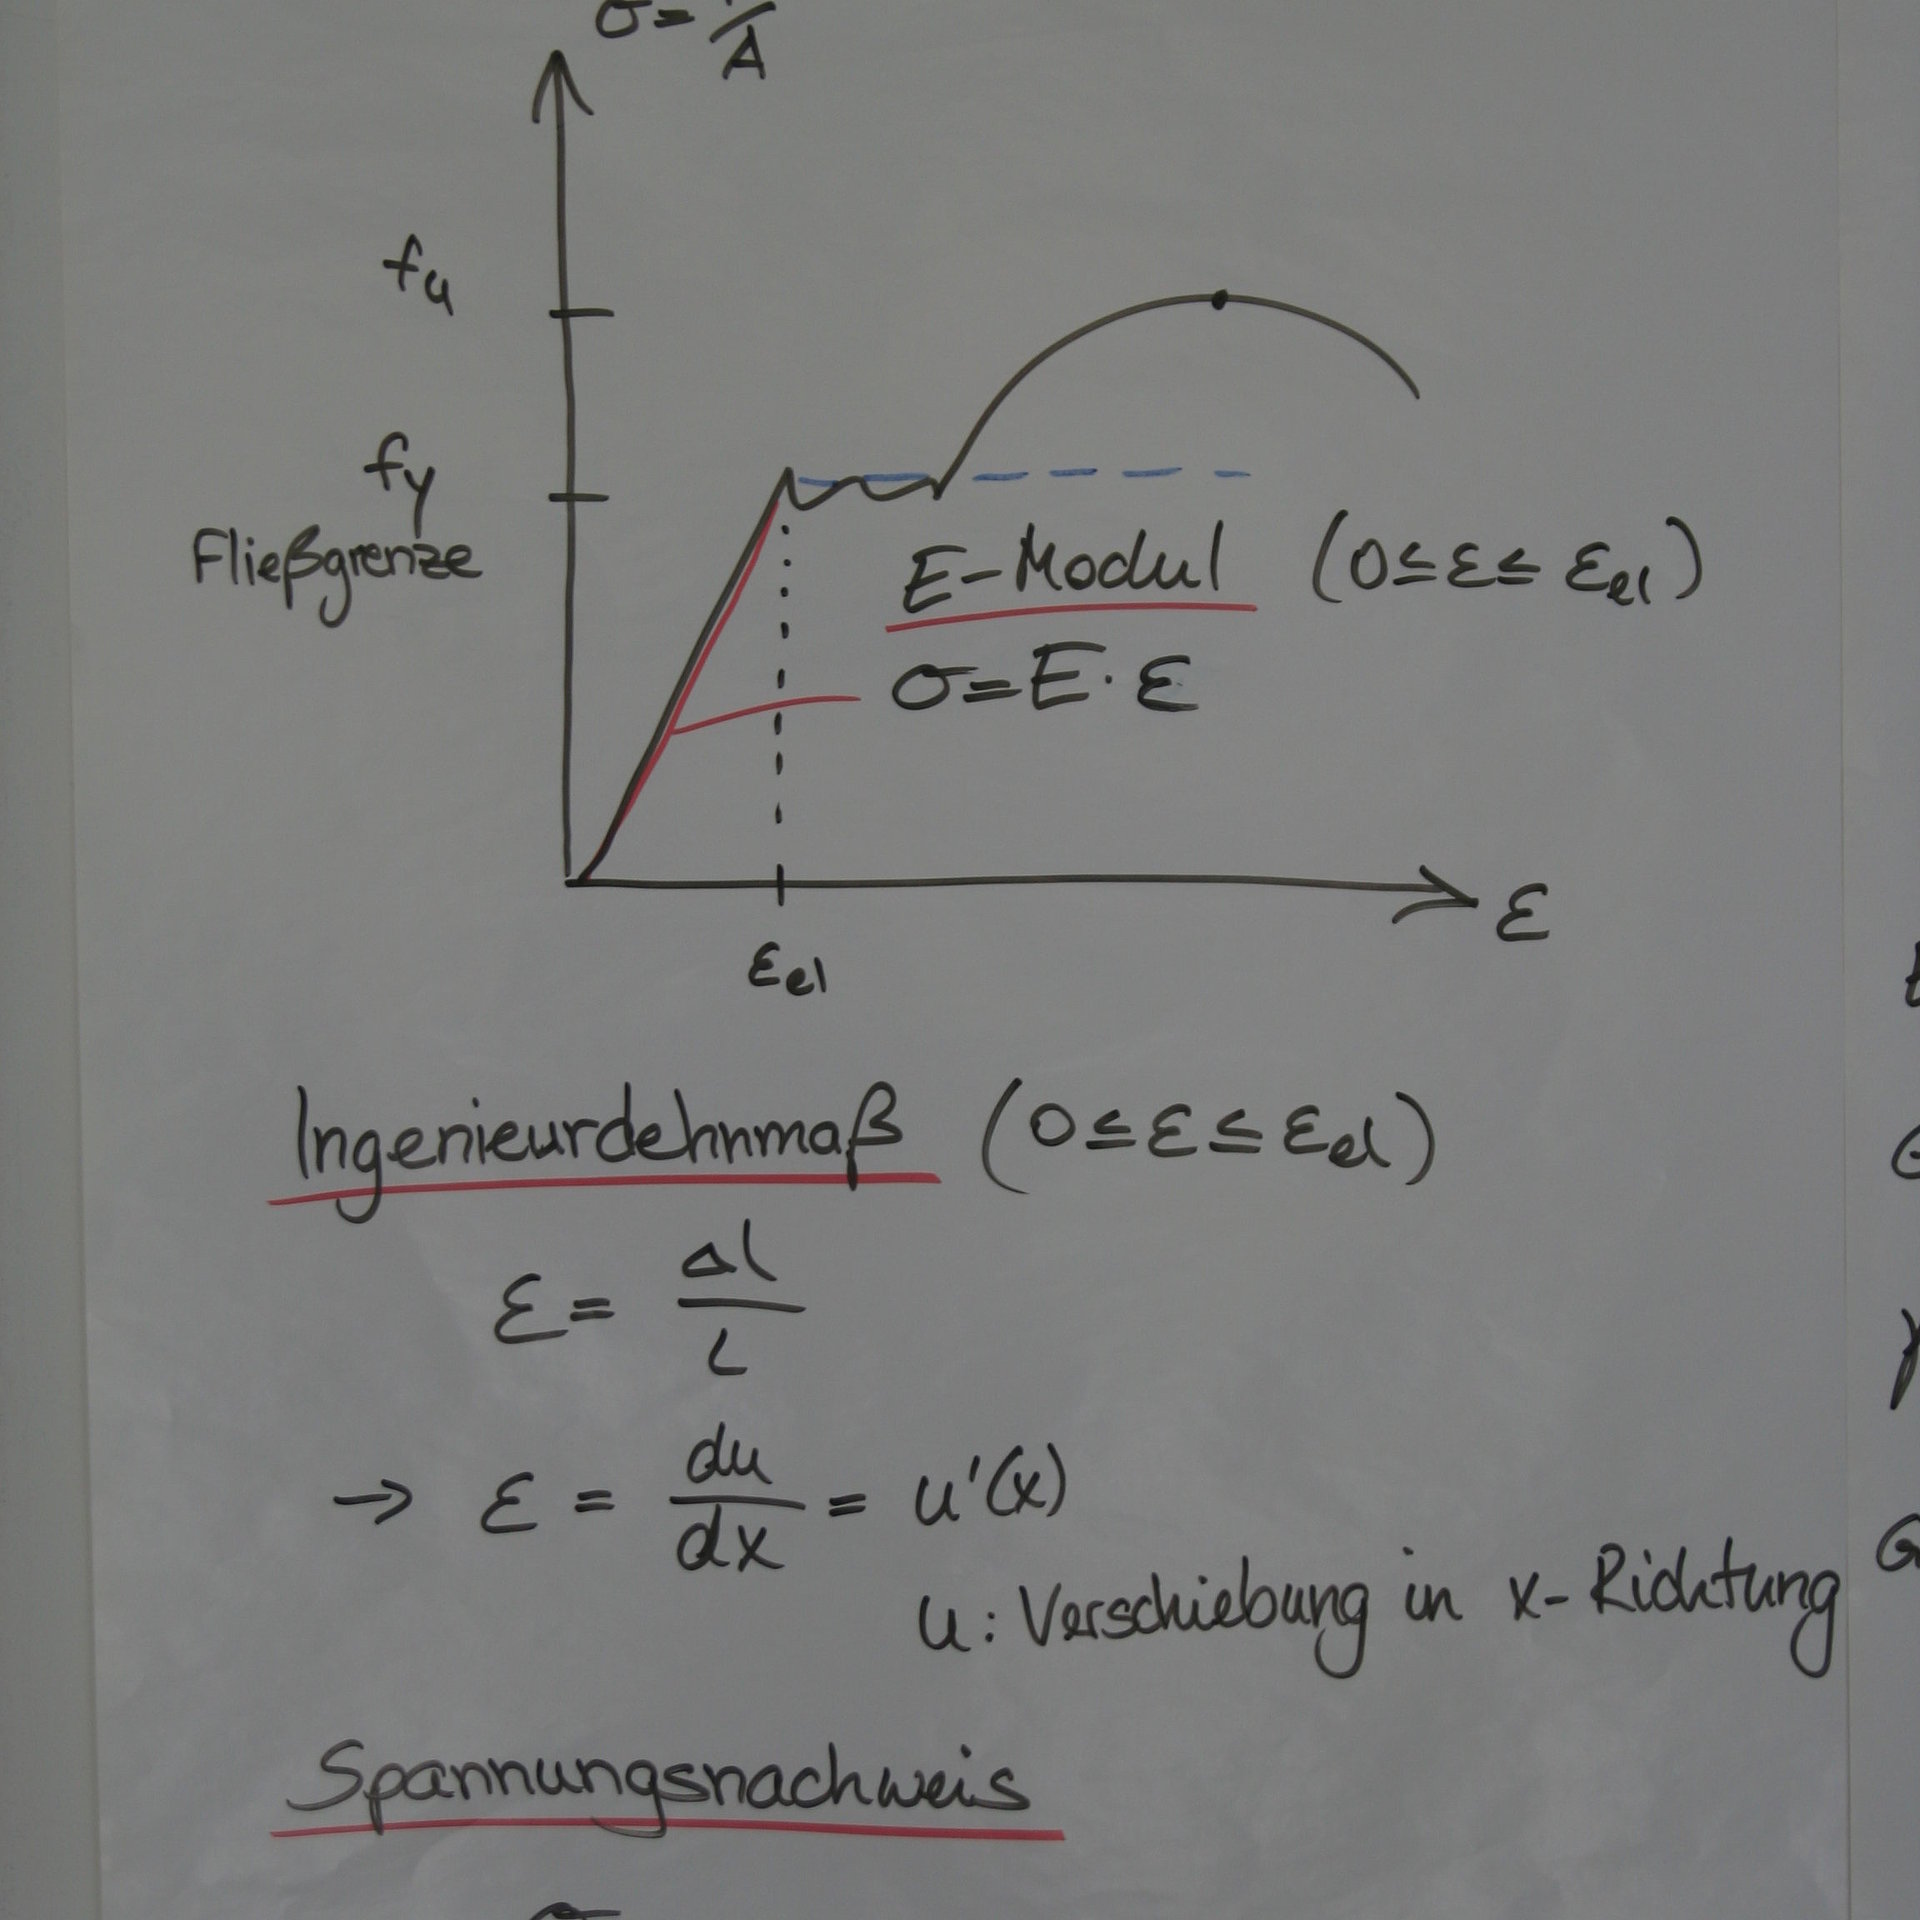 σ = /A
fu
fy
Fließgrenze
E-Modul (0 ≤ ε ≤ εel)
σ = E · ε
ε
εel
Ingenieurdehnmaß (0 ≤ ε ≤ εel)
ε = Δl / L
→ ε = du / dx = u'(x)
u: Verschiebung in x-Richtung
Spannungsnachweis